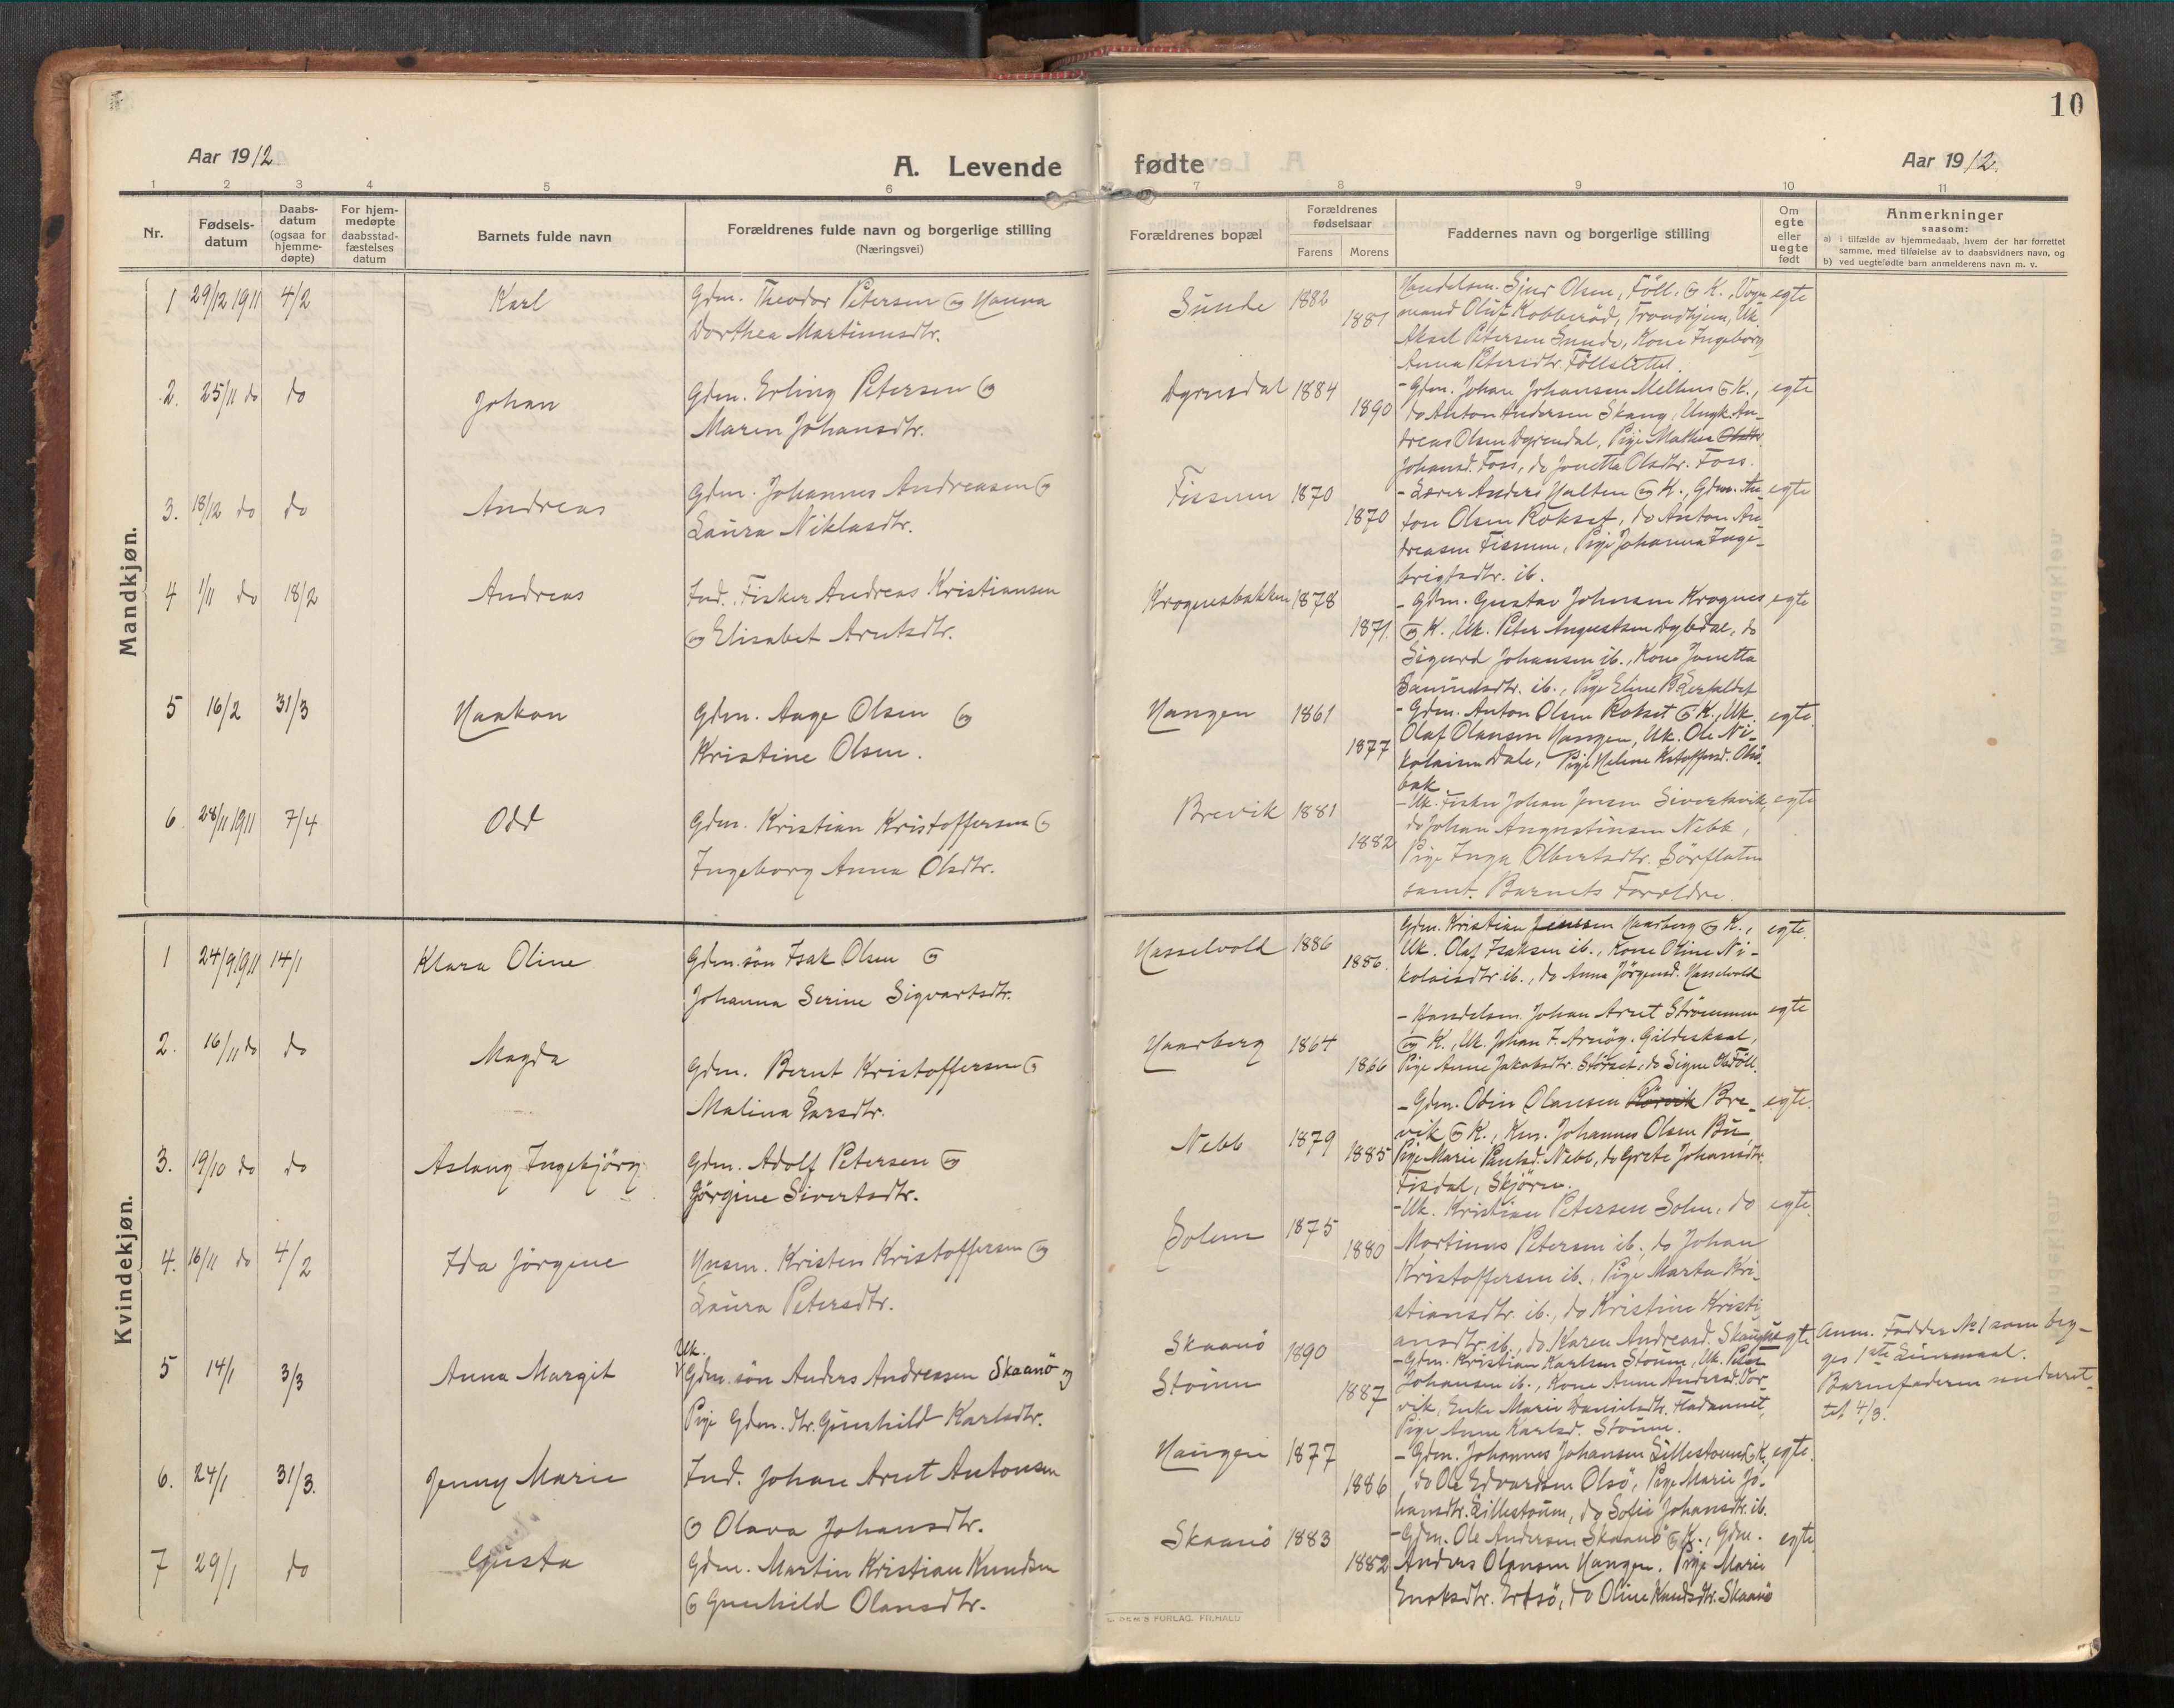 10
Aar 1912
A. Levende fødte
Aar 1912.
1 2 3 4 5 6 7 8 9 10 11
Nr.
Fødsels-
datum
Daabs-
datum
(ogsaa for
hjemme-
døpte)
For hjem-
medøpte
daabsstad-
fæstelses
datum
Barnets fulde navn
Forældrenes fulde navn og borgerlige stilling
(Næringsvei)
Forældrenes bopæl
Forældrenes
fødselsaar
Farens Morens
Faddernes navn og borgerlige stilling
Om
egte
eller
uegte
født
Anmerkninger
saasom:
a) i tilfælde av hjemmedaab, hvem der har forrettet
samme, med tilføielse av to daabsvidners navn, og
b) ved uegtefødte barn anmelderens navn m. v.
Mandkjøn.
1 29/12 1911 4/2 Karl
Gdm. Theodor Petersen og Hanna
Dorthea Martinusdtr.
Sunde 1882 1881
Handelsm. Sjur Olsen, Föll, og K.,
mand Oluf Kobberød, Trondhjem, Uk.
Aksel Petersen Sunde, Kone Ingeborg
Anna Petersdtr. Föllslettet.
egte
2. 25/11 do do Johan
Gdm. Erling Petersen og
Maren Johansdtr.
Dyrendal 1884 1890
- Gdm. Johan Johansen Melhus og K.,
do Anton Andersen Skaug, Ungk. An-
dreas Olsen Dyrendal, Pige Mathea
Johansd. Foss, do Jonetta Olsdtr. Foss.
egte
3. 18/12 do do Andreas
Gdm. Johannes Andreasen og
Laura Niklasdtr.
Fissum 1870 1870
- Lærer Anders Halten og K., Gdm. An-
ton Olsen Rokset, do Anton An-
dreasen Fissum, Pige Johanna Inge-
brigtsdtr. ib.
egte
4 1/11 do 18/2 Andreas
Ind. Fisker Andreas Kristiansen
og Elisabet Arntsdtr.
Krognesbakken 1878 1871.
- Gdm. Gustav Johnsen Krognes
og K., Uk. Peter Augustsen Dybdal, do
Sigurd Johansen ib., Kone Jonetta
ib., Pige Eline
egte
5 16/2 31/3 Haakon
Gdm. Aage Olsen og
Kristine Olsen.
Haugen 1861 1877
- Gdm. Anton Olsen Rokset og K., Uk.
Olaf Olausen Haugen, Uk. Ole Ni-
kolaisen Dale, Pige Helene Kstoffersd. Olsö-
bak
egte.
6 28/11 1911 7/4 Odd
Gdm. Kristian Kristoffersen og
Ingeborg Anna Olsdtr.
Brevik 1881 1882
- Uk. Fisker Johan Jensen Sivertsvik,
do Johan Augustinsen Nebb,
Pige Inga Olbertsdtr. Sörflaten
samt Barnets Forældre.
egte
Kvindekjøn.
1 24/9 1911 14/1 Klara Oline
Gdm.søn Isak Olsen og
Johanna Serine Sigvartsdtr.
Hasselvold 1886 1886.
Gdm. Kristian Jensen Haarberg og K.,
Uk. Olaf Isaksen ib., Kone Oline Ni-
kolaisdtr. ib., do Anna Jörgensd. Hasselvold
egte.
2. 16/11 do do Magda
Gdm. Bernt Kristoffersen og
Malina Larsdtr.
Haarberg 1864 1866
- Handelsm. Johan Arnt Strömmen
og K., Uk. Johan F. Arnöy, Gildeskaal,
Pige Anne Jakobsdtr. Störset, do Signe Föll.
egte
3. 19/10 do do Aslaug Ingebjörg.
Gdm. Adolf Petersen og
Jörgine Sivertsdtr.
Nebb 1879 1885
- Gdm. Odin Olausen Rörvik Bre-
vik og K., Johannes Olsen Bu
Pige Marie Paulsd. Nebb, do Grete Johansdtr.
Fisdal, Skjörn.
egte.
4. 16/11 do 4/2 Ida Jörgine
Husm. Kristen Kristoffersen og
Laura Petersdtr.
Solem 1875 1880
- Uk. Kristian Petersen Solem, do
Martinus Petersen ib., do Johan
Kristoffersen ib., Pige Marta Kri-
stiansdtr. ib., do Kristine Kristi-
ansdtr. ib., do Karen Andreasd.
egte.
5 14/1 3/3 Anna Margit
Uk.
Gdm.søn Anders Andreasen Skaanö og
Pige Gdm.dtr. Gunhild Karlsdtr.
Skaanö
Stöum
1890 1887
- Gdm. Kristian Karlsen Stöum, Uk. Peter
Johansen ib., Kone Anne Andersd. Vor-
vik, Enke Marie Danielsdtr.
Pige Anne Karlsd. Stöum.
uegte
Anm. Fadder No 1 som bey-
ges 1ste Leiermaal.
Barnefaderen underret-
tet 4/3.
6. 24/1 31/3. Jenny Marie
Ind. Johan Arnt Antonsen
og Olava Johansdtr.
Haugen 1877 1886
- Gdm. Johannes Johansen Lillestöum og K.
do Ole Edvardsen Olsö, Pige Marie Jo-
hansdtr. Lillestöum, do Sofie Johansdtr. ib.
egte.
7 29/1 do Gusta
Gdm. Martin Kristian Knudsen
og Gunhild Olausdtr.
Skaanö 1883 1882
- Gdm. Ole Andersen Skaanö og K., Gdm.
Anders Olausen Haugen. Pige Marie
Enoksdtr. Ertsö, do Oline Knudsdtr. Skaanö
egte.
E. SEM'S FORLAG, FR.HALD